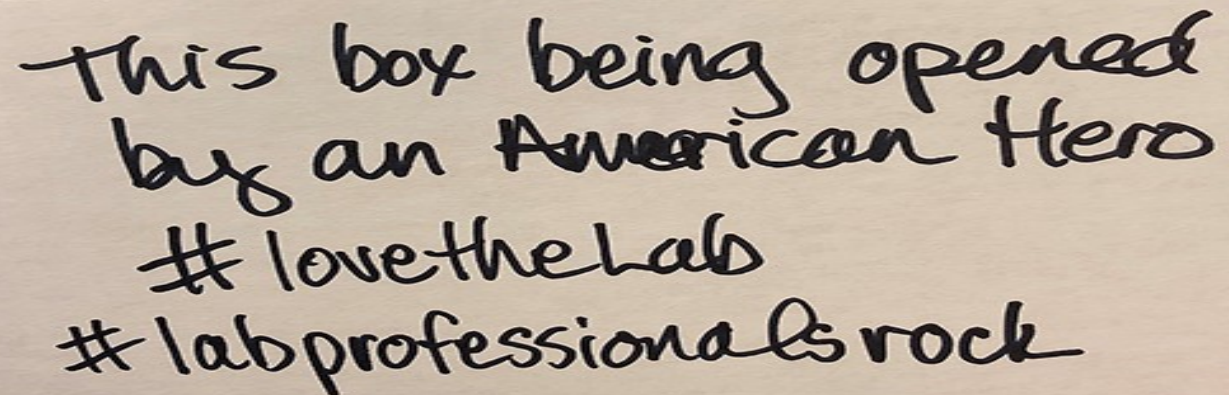 This box being opened
by an American Hero
#lovetheLab
#labprofessionalsrock